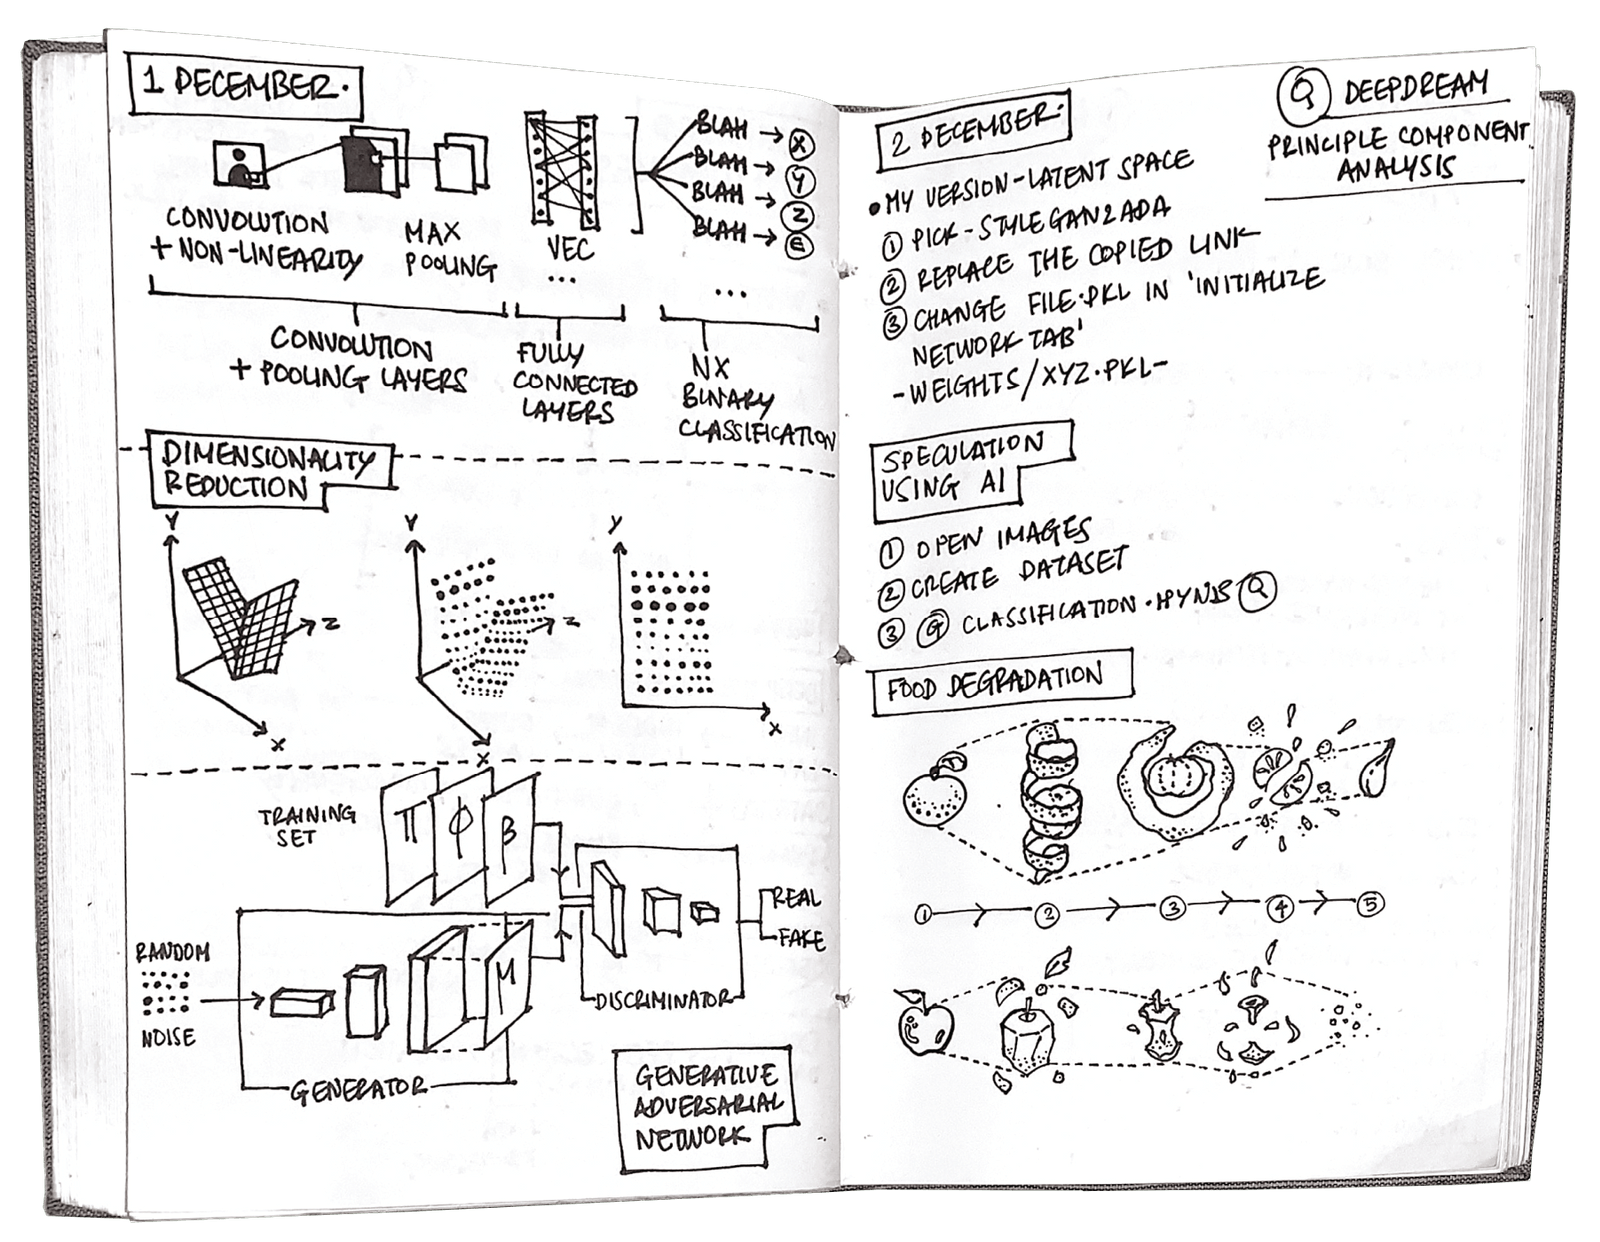 1 DECEMBER.
BLAH → X
BLAH → Y
BLAH → Z
BLAH → E
CONVOLUTION
+ NON-LINEARITY
MAX
POOLING
VEC
...
...
CONVOLUTION
+ POOLING LAYERS
FULLY
CONNECTED
LAYERS
NX
BINARY
CLASSIFICATION
DIMENSIONALITY
REDUCTION
Y
Z
X
Y
Z
X
Y
X
TRAINING
SET
π
φ
β
REAL
FAKE
DISCRIMINATOR
RANDOM
NOISE
M
GENERATOR
GENERATIVE
ADVERSARIAL
NETWORK
2 DECEMBER.
Q DEEPDREAM
PRINCIPLE COMPONENT
ANALYSIS
• MY VERSION - LATENT SPACE
① PICK - STYLEGAN2ADA
② REPLACE THE COPIED LINK
③ CHANGE FILE.PKL IN 'INITIALIZE
NETWORK TAB'
- WEIGHTS / XYZ.PKL -
SPECULATION
USING AI
① OPEN IMAGES
② CREATE DATASET
③ G CLASSIFICATION . Q
FOOD DEGRADATION
① ② ③ ④ ⑤